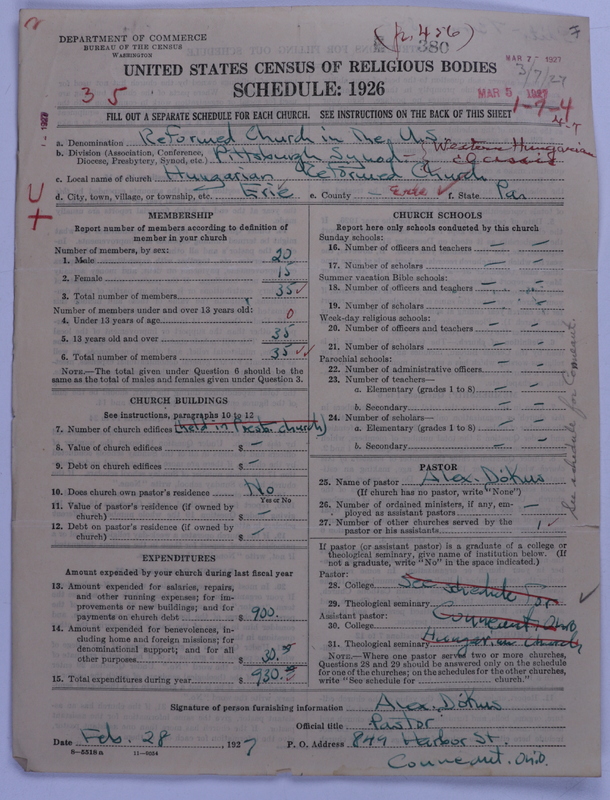 (R-456)
380
DEPARTMENT OF COMMERCE
BUREAU OF THE CENSUS
WASHINGTON
MAR 7 - 1927
3/7/27
UNITED STATES CENSUS OF RELIGIOUS BODIES
SCHEDULE: 1926
MAR 5 1927
3 5
1-9-4
FILL OUT A SEPARATE SCHEDULE FOR EACH CHURCH. SEE INSTRUCTIONS ON THE BACK OF THIS SHEET
a. Denomination Reformed Church in the U.S.
b. Division (Association, Conference, Diocese, Presbytery, Synod, etc.) Pittsburgh Synod - Western Hungarian Classis
c. Local name of church Hungarian Reformed Church
d. City, town, village, or township, etc. Erie e. County Erie f. State Pa.
MEMBERSHIP
Report number of members according to definition of
member in your church
Number of members, by sex:
1. Male 20
2. Female 15
3. Total number of members 35
Number of members under and over 13 years old:
4. Under 13 years of age 0
5. 13 years old and over 35
6. Total number of members 35
NOTE.—The total given under Question 6 should be
same as the total of males and females given under Question 3.
CHURCH BUILDINGS
See instructions, paragraphs 10 to 12
7. Number of church edifices (held in Presb. church)
8. Value of church edifices $ —
9. Debt on church edifices $ —
10. Does church own pastor's residence No
Yes or No
11. Value of pastor's residence (if owned by
church) $ —
12. Debt on pastor's residence (if owned by
church) $ —
EXPENDITURES
Amount expended by your church during last fiscal year
13. Amount expended for salaries, repairs,
and other running expenses; for im-
provements or new buildings; and for
payments on church debt $ 900.
14. Amount expended for benevolences, in-
cluding home and foreign missions; for
denominational support; and for all
other purposes 30.
15. Total expenditures during year $ 930.
CHURCH SCHOOLS
Report here only schools conducted by this church
Sunday schools:
16. Number of officers and teachers — —
17. Number of scholars — —
Summer vacation Bible schools:
18. Number of officers and teachers — —
19. Number of scholars — —
Week-day religious schools:
20. Number of officers and teachers — —
21. Number of scholars — —
Parochial schools:
22. Number of administrative officers — —
23. Number of teachers—
a. Elementary (grades 1 to 8) — —
b. Secondary — —
24. Number of scholars—
a. Elementary (grades 1 to 8) — —
b. Secondary — —
See schedule for Conneaut
PASTOR
25. Name of pastor Alex. Dókus
(If church has no pastor, write "None")
26. Number of ordained ministers, if any, em-
ployed as assistant pastors —
27. Number of other churches served by the
pastor or his assistants 1
If pastor (or assistant pastor) is a graduate of a college or
theological seminary, give name of institution below. (If
not a graduate, write "No" in the space indicated.)
Pastor:
28. College See schedule for
29. Theological seminary
Assistant pastor: Conneaut, Ohio
30. College
31. Theological seminary Hungarian Church
NOTE.—Where one pastor served two or more churches,
Questions 28 and 29 should be answered only on the schedule
for one of the churches; on the schedules for the other churches,
write "See schedule for ............ church."
Signature of person furnishing information Alex. Dókus
Official title Pastor
Date Feb. 28, 1927 P. O. Address 849 Harbor St.
Conneaut, Ohio.
8—5518a 11—9034